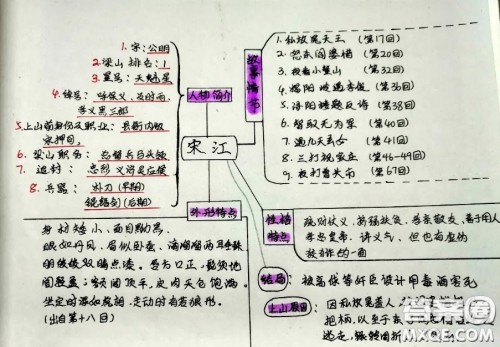 人物简介
1. 宋:公明
2. 梁山排名:1
3. 星号:天魁星
4. 绰号:呼保义、及时雨、
孝义黑三郎
5. 上山前身份及职业:县衙内
宋押司
6. 梁山职务:总督兵马头领
7. 追封:忠烈义济灵应侯
8. 兵器:朴刀(早期)
锟铻剑(后期)
宋江
故事情节
1. 私放晁天王(第17回)
2. 怒杀阎婆惜(第20回)
3. 夜看小鳌山(第32回)
4. 揭阳(第36回)
5. 浔阳楼题反诗(第38回)
6. 智取无为军(第40回)
7. 遇九天玄女(第41回)
8. 三打祝家庄(第46-49回)
9. 夜打曾头市(第67回)
外形特点
身材矮小、面目黝黑
眼如丹凤、眉似卧蚕、滴溜溜两耳垂珠
明皎皎双睛点漆。唇方口正,髭须地
阁轻盈;额阔顶平,皮肉天仓饱满。
坐定时浑如虎相,走动时有若狼形。
(出自第十八回)
性格特点
疏财仗义、济弱扶贫、善于用人
孝忠皇帝、讲义气、但也有虚伪
的一面
结局:被高俅等奸臣设计用毒酒害死
上山原因:因私放晁盖
把柄,以至于杀
逃走,辗转周折
答案圈
MXQE.COM